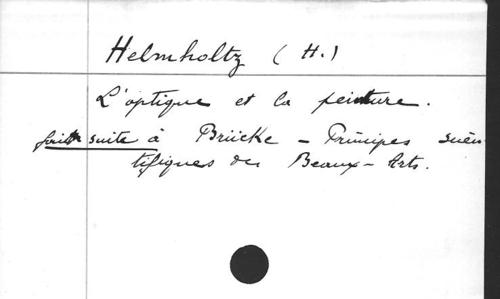 Helmholtz (H.)
L'optique et la peinture.
fait suite à Brücke - Principes scien-
tifiques des Beaux-Arts.